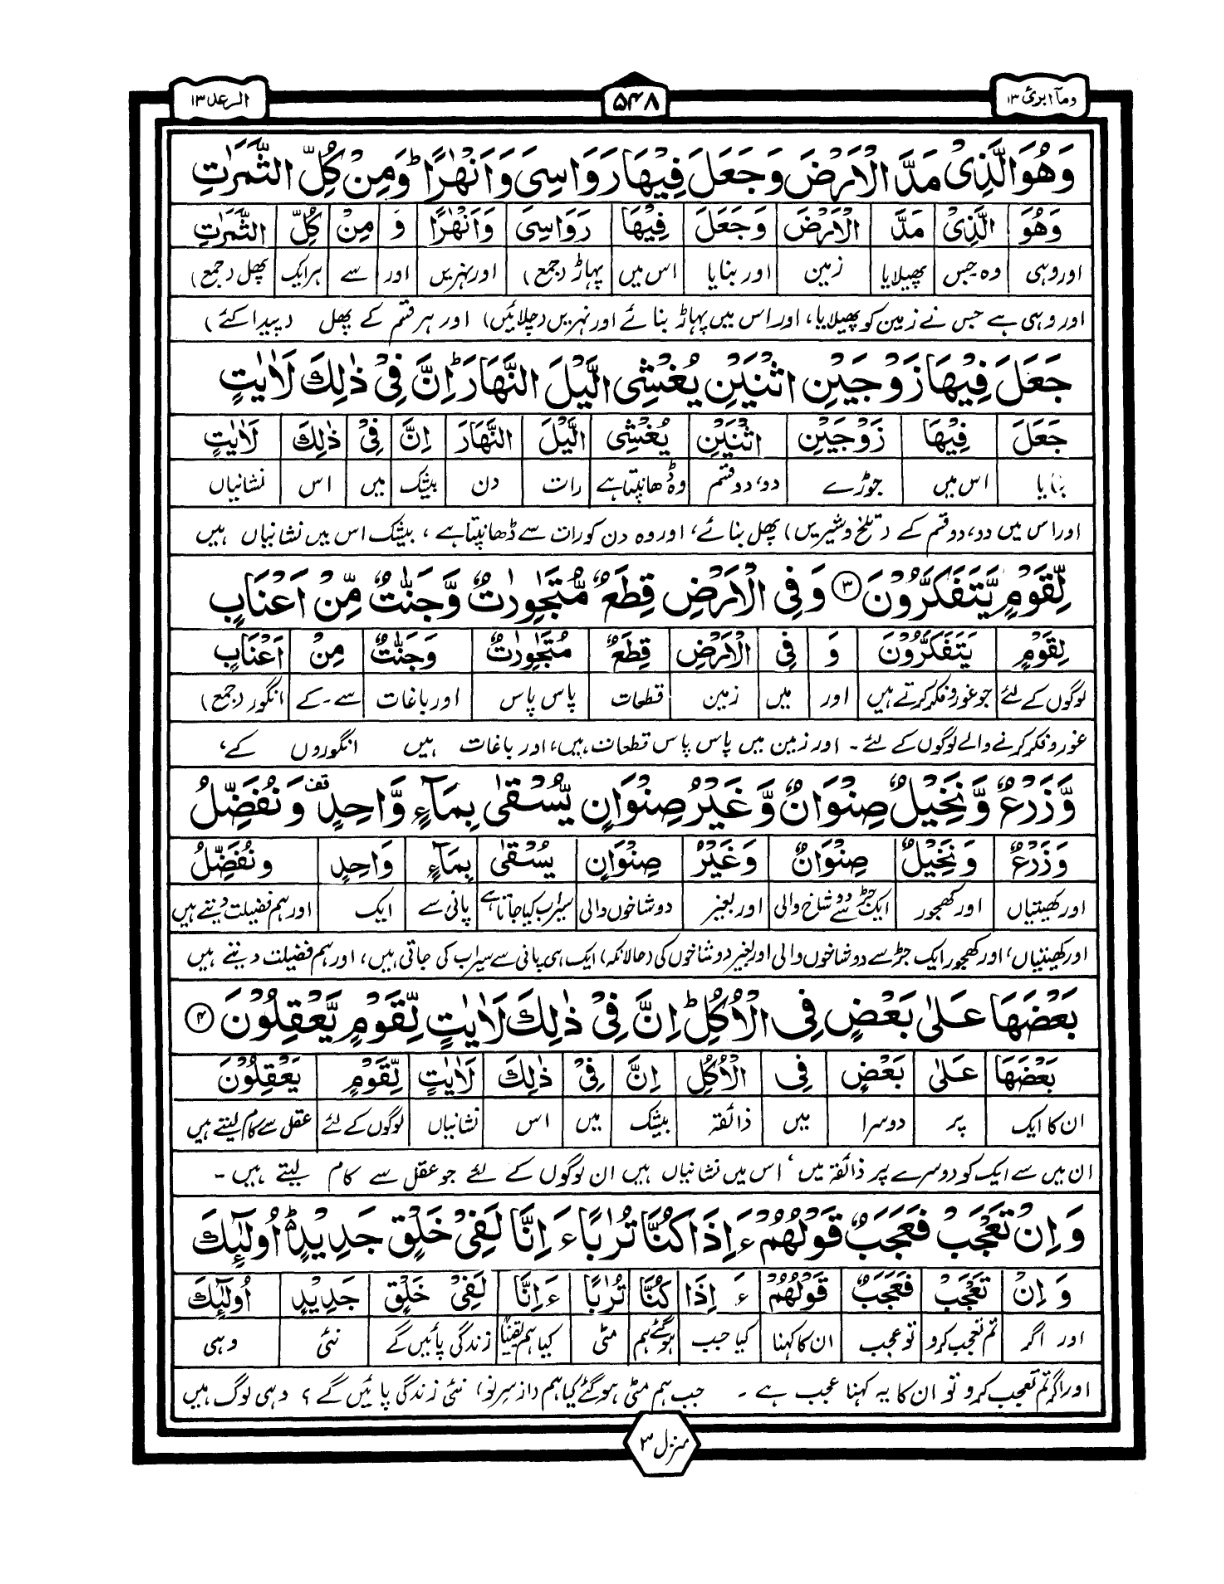 وما ابرئ ١٣
۵۴۸
الرعد ١٣
وَهُوَ الَّذِیْ مَدَّ الْاَرْضَ وَجَعَلَ فِیْهَا رَوَاسِیَ وَاَنْهٰرًا ؕ وَمِنْ كُلِّ الثَّمَرٰتِ
وَهُوَ الَّذِیْ مَدَّ الْاَرْضَ وَجَعَلَ فِیْهَا رَوَاسِیَ وَاَنْهٰرًا وَ مِنْ كُلِّ الثَّمَرٰتِ
اور وہی وہ جس پھیلایا زمین اور بنایا اس میں پہاڑ (جمع) اور نہریں اور سے ہر ایک پھل (جمع)
اور وہی ہے جس نے زمین کو پھیلایا، اور اس میں پہاڑ بنائے اور نہریں (چلائیں) اور ہر قسم کے پھل (پیدا کئے)
جَعَلَ فِیْهَا زَوْجَیْنِ اثْنَیْنِ یُغْشِی الَّیْلَ النَّهَارَ ؕ اِنَّ فِیْ ذٰلِكَ لَاٰیٰتٍ
جَعَلَ فِیْهَا زَوْجَیْنِ اثْنَیْنِ یُغْشِی الَّیْلَ النَّهَارَ اِنَّ فِیْ ذٰلِكَ لَاٰیٰتٍ
بنایا اس میں جوڑے دو، دو قسم وہ ڈھانپتا ہے رات دن بیشک میں اس نشانیاں
اور اس میں دو، دو قسم کے (تلخ و شیریں) پھل بنائے، اور وہ دن کو رات سے ڈھانپتا ہے، بیشک اس میں نشانیاں ہیں
لِّقَوْمٍ یَّتَفَكَّرُوْنَ ۝۳ وَفِی الْاَرْضِ قِطَعٌ مُّتَجٰوِرٰتٌ وَّجَنّٰتٌ مِّنْ اَعْنَابٍ
لِقَوْمٍ یَتَفَكَّرُوْنَ وَ فِی الْاَرْضِ قِطَعٌ مُتَجٰوِرٰتٌ وَجَنّٰتٌ مِنْ اَعْنَابٍ
لوگوں کے لئے جو غور و فکر کرتے ہیں اور میں زمین قطعات پاس پاس اور باغات سے۔ کے انگور (جمع)
غور و فکر کرنے والے لوگوں کے لئے۔ اور زمین میں پاس پاس قطعات ہیں، اور باغات ہیں انگوروں کے،
وَّزَرْعٌ وَّنَخِیْلٌ صِنْوَانٌ وَّغَیْرُ صِنْوَانٍ یُّسْقٰی بِمَآءٍ وَّاحِدٍ ۫ وَنُفَضِّلُ
وَزَرْعٌ وَنَخِیْلٌ صِنْوَانٌ وَغَیْرُ صِنْوَانٍ یُسْقٰی بِمَآءٍ وَاحِدٍ وَنُفَضِّلُ
اور کھیتیاں اور کھجور ایک جڑ سے دو شاخ والی اور بغیر دو شاخوں والی سیراب کیا جاتا ہے پانی سے ایک اور ہم فضیلت دیتے ہیں
اور کھیتیاں، اور کھجور ایک جڑ سے دو شاخوں والی اور بغیر دو شاخوں کی (حالانکہ) ایک ہی پانی سے سیراب کی جاتی ہیں، اور ہم فضیلت دیتے ہیں
بَعْضَهَا عَلٰی بَعْضٍ فِی الْاُكُلِ ؕ اِنَّ فِیْ ذٰلِكَ لَاٰیٰتٍ لِّقَوْمٍ یَّعْقِلُوْنَ ۝۴
بَعْضَهَا عَلٰی بَعْضٍ فِی الْاُكُلِ اِنَّ فِیْ ذٰلِكَ لَاٰیٰتٍ لِّقَوْمٍ یَعْقِلُوْنَ
ان کا ایک پر دوسرا میں ذائقہ بیشک میں اس نشانیاں لوگوں کے لئے عقل سے کام لیتے ہیں
ان میں سے ایک کو دوسرے پر ذائقہ میں، اس میں نشانیاں ہیں ان لوگوں کے لئے جو عقل سے کام لیتے ہیں۔
وَاِنْ تَعْجَبْ فَعَجَبٌ قَوْلُهُمْ ءَاِذَا كُنَّا تُرٰبًا ءَاِنَّا لَفِیْ خَلْقٍ جَدِیْدٍ ؕ اُولٰٓئِكَ
وَ اِنْ تَعْجَبْ فَعَجَبٌ قَوْلُهُمْ ءَ اِذَا كُنَّا تُرٰبًا ءَاِنَّا لَفِیْ خَلْقٍ جَدِیْدٍ اُولٰٓئِكَ
اور اگر تم تعجب کرو تو عجب ان کا کہنا کیا جب ہو گئے ہم مٹی کیا ہم یقیناً زندگی پائیں گے نئی وہی
اور اگر تم تعجب کرو تو ان کا یہ کہنا عجب ہے۔ جب ہم مٹی ہو گئے کیا ہم (از سر نو) نئی زندگی پائیں گے؟ وہی لوگ ہیں
منزل ۳